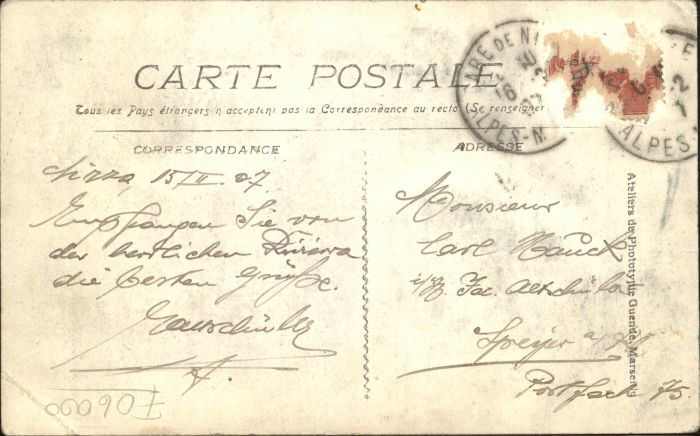 CARTE POSTALE
Tous les Pays étrangers n'acceptent pas la Correspondance au recto (Se renseigner
CORRESPONDANCE
ADRESSE
Nizza 15/II 07.
Empfangen Sie von
der herrlichen Riviera
die besten Grüße.
Monsieur
Carl
Speyer a/Rh
Postfach 75
GARE DE NI
ALPES-M
ALPES
Ateliers de Phototypie Guende, Marseille
F06a00